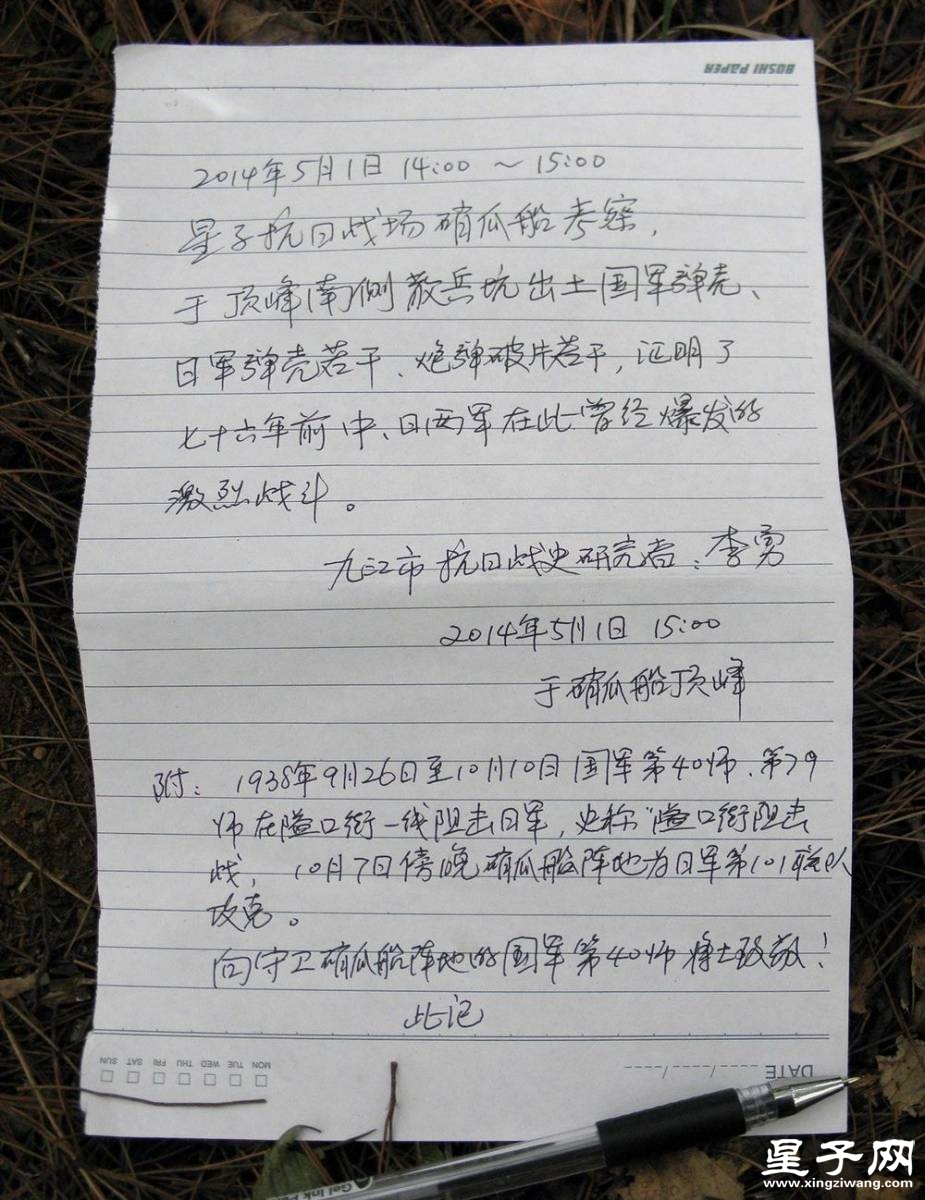 BOSHI PAPER
2014年5月1日 14:00 ～ 15:00
星子抗日战场硝瓜船考察,
于顶峰南侧散兵坑出土国军弹壳、
日军弹壳若干、炮弹破片若干, 证明了
七十六年前中、日两军在此曾经爆发的
激烈战斗。
九江市抗日战史研究者: 李勇
2014年5月1日 15:00
于硝瓜船顶峰
附: 1938年9月26日至10月10日国军第40师、第79
师在隘口街一线阻击日军, 史称"隘口街阻击
战, 10月7日傍晚硝瓜船阵地为日军第101联队
攻克。
向守卫硝瓜船阵地的国军第40师将士致敬!
此记
MON TUE WED THU FRI SAT SUN
DATE ____/____/____
Gel Ink Pe
星子网
www.xingziwang.com